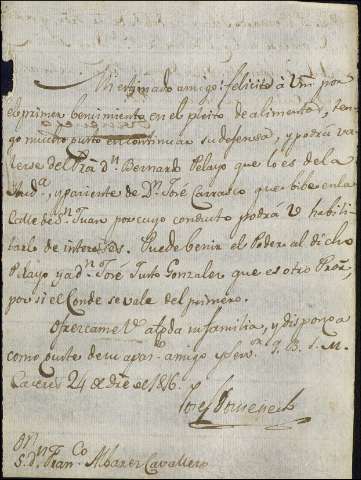 Mi estimado amigo: felicito a Vm por
el primer bencimiento en el pleito de alimentos, ten
go mucho gusto en continuar su defensa, y podra va
lerse del Pror dn Bernardo Pelayo que lo es de la
Auda, y pariente de Dn José Carrasco que bibe en la
Calle de Sn Juan por cuyo conducto podra V habili
tarlo de intereses. Puede benir el Poder al dicho
Pelayo y a dn José Justo Gonzalez que es otro Pror,
por si el Conde se vale del primero.
Ofrezcame V. a toda su familia, y disponga
como guste de su apas. amigo y serv.or Q. B. S. M.
Caceres 24 de Dre de 1816.
José Domenech
Sr. Dn Franco Albarez Cavallero